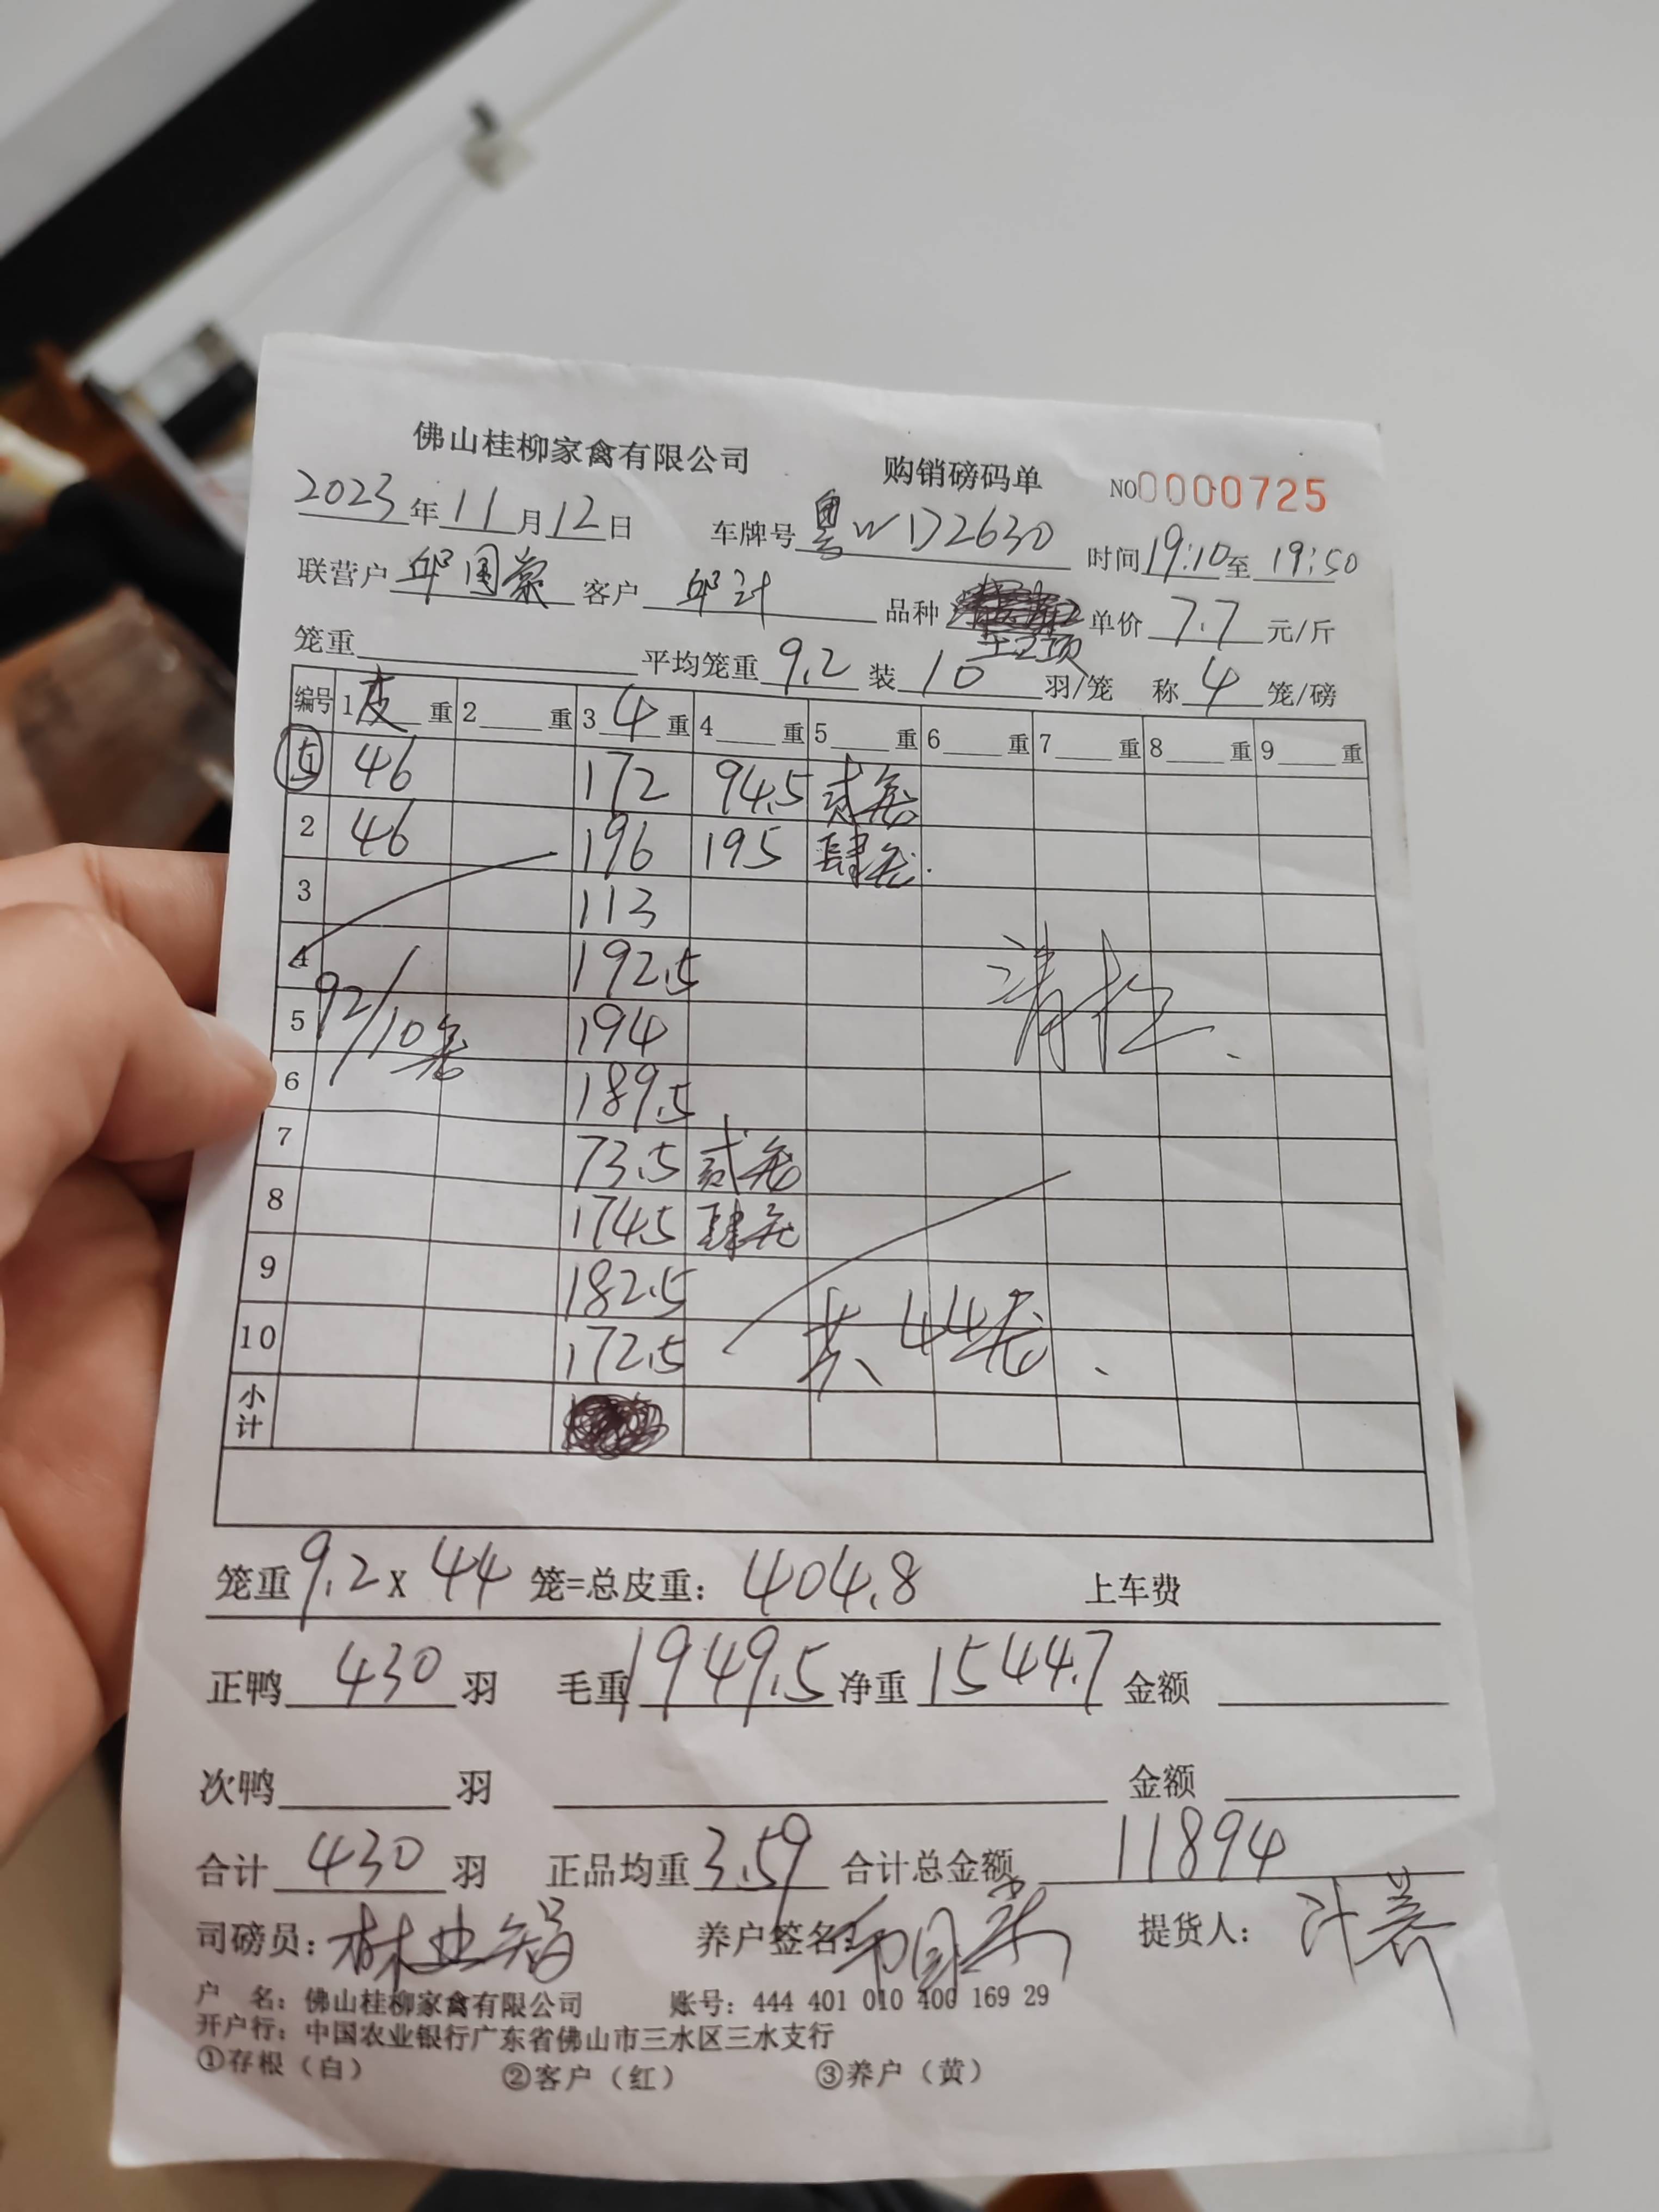 佛山桂柳家禽有限公司 购销磅码单 NO0000725
2023年11月12日 车牌号 粤WD2630 时间19:10至19:50
联营户 邱国棠 客户 邱计 品种 土2项 单价 7.7 元/斤
笼重 平均笼重 9.2 装 10 羽/笼 称 4 笼/磅
编号 1皮重 2重 3 4重 4重 5重 6重 7重 8重 9重
5 46 172 94.5 贰笼
2 46 196 195 肆笼.
3 113
4 192.5
5 92/10笼 194 清栏.
6 189.5
7 73.5 贰笼
8 174.5 肆笼
9 182.5
10 172.5 共44笼.
小计
笼重9.2X 44 笼=总皮重: 404.8 上车费
正鸭 430 羽 毛重1949.5 净重 1544.7 金额
次鸭 羽 金额
合计 430 羽 正品均重3.59 合计总金额 11894
司磅员: 养户签名: 提货人:
户 名: 佛山桂柳家禽有限公司 账号: 444 401 010 400 169 29
开户行: 中国农业银行广东省佛山市三水区三水支行
①存根（白） ②客户（红） ③养户（黄）